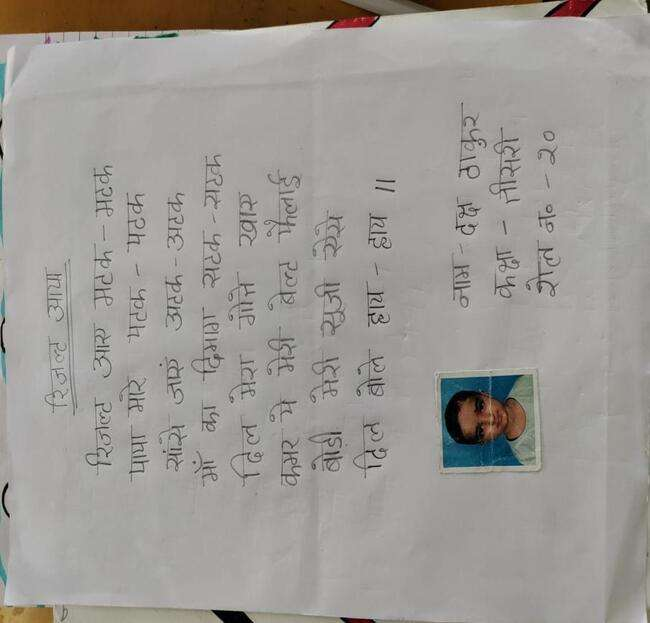 रिजल्ट आया
रिजल्ट आए मटक - मटक
पापा मारे पटक - पटक
सांसे जाऐ अटक - अटक
माँ का दिमाग सटक - सटक
दिल मेरा गोते खाए
कमर पे मेरी बेल्ट फैलाई
बोडी मेरी सूजी ऐसे
दिल बोले हाय - हाय ॥
नाम - दक्ष ठाकुर
कक्षा - तीसरी
रोल नं० - २०